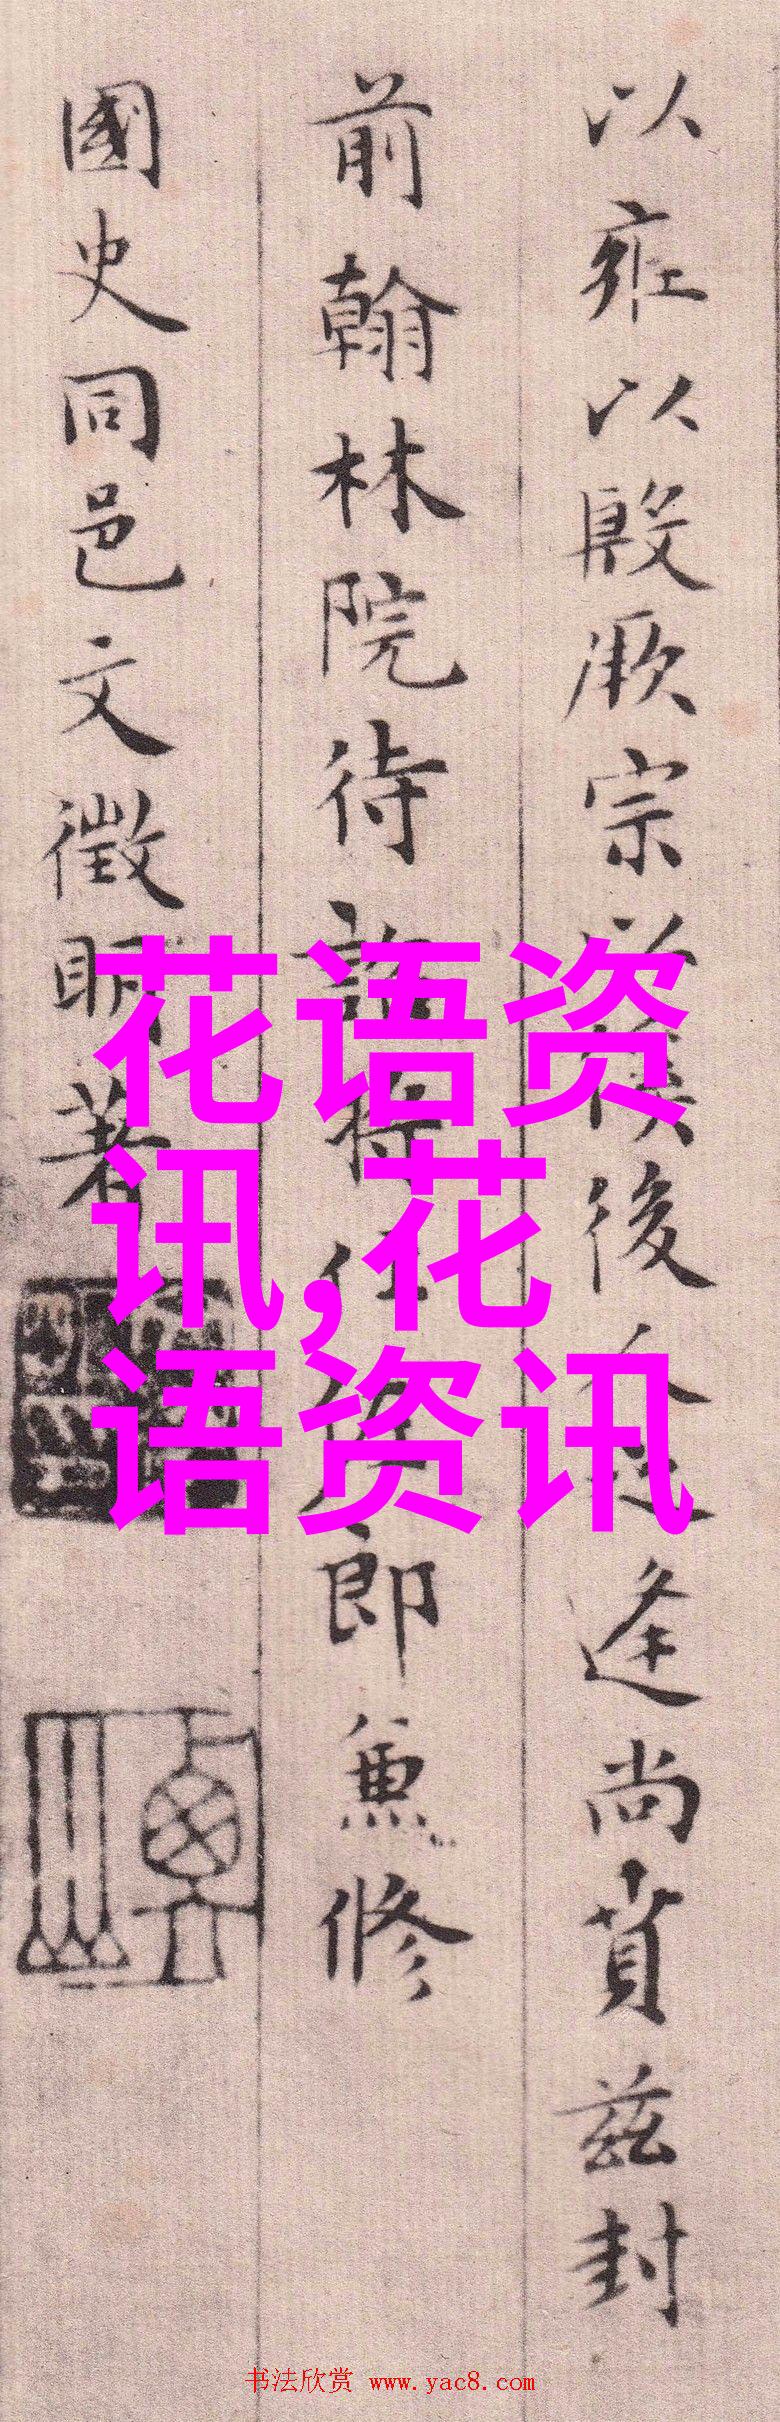 以雍以殷厥宗
後
逢尚賁茲封
前翰林院待詔將仕佐郎兼修
國史同邑文徵明著
花语资
讯,花
语资讯
书法欣赏 www.yac8.com